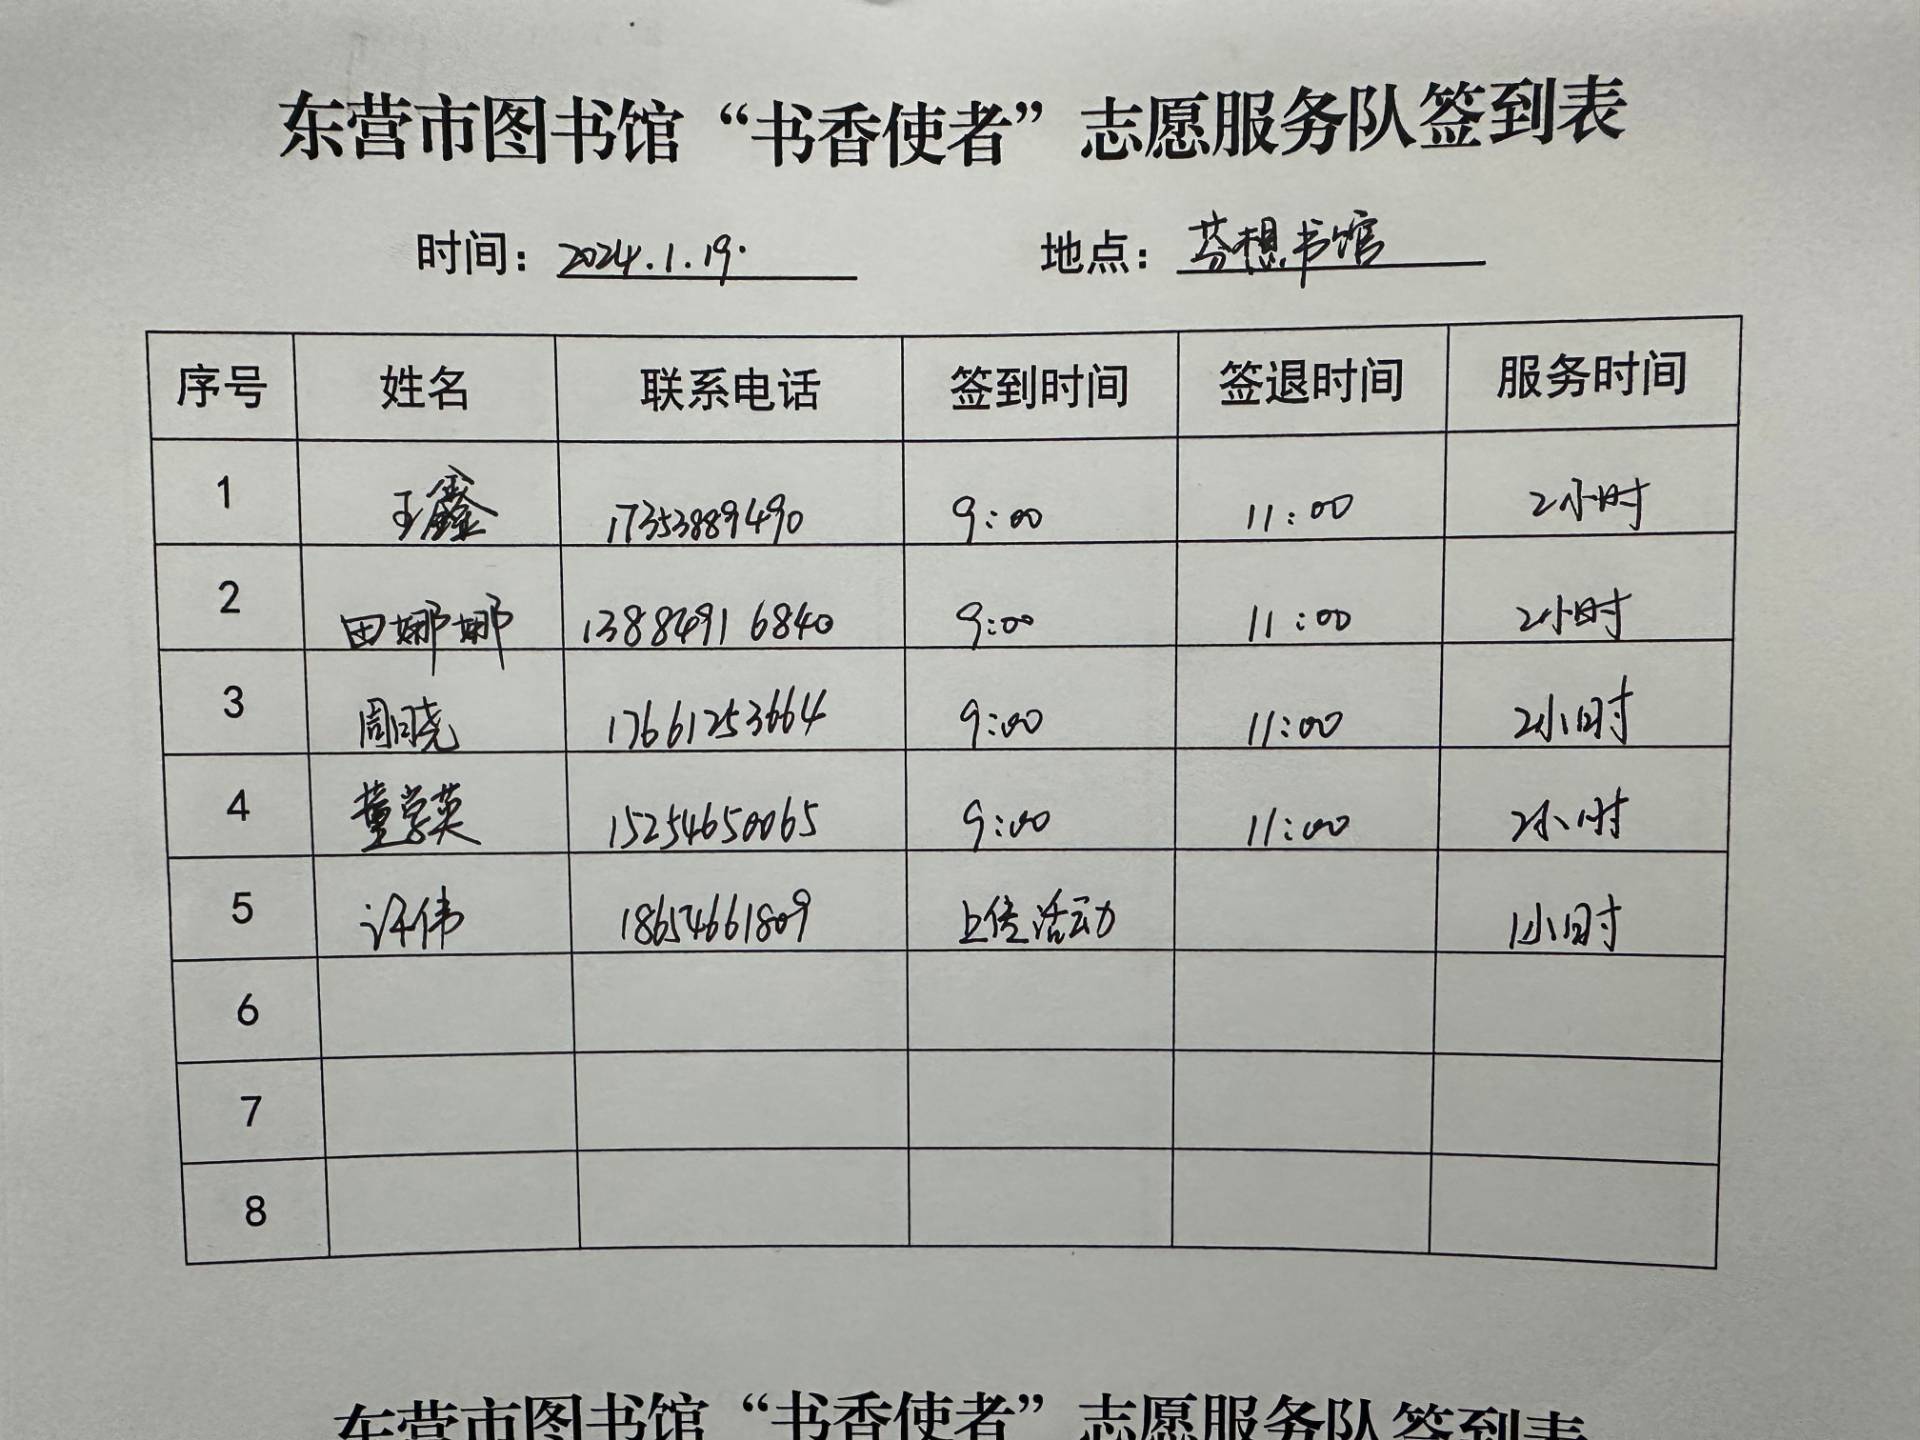 东营市图书馆“书香使者”志愿服务队签到表
时间：2024.1.19. 地点：芬想书馆
序号 姓名 联系电话 签到时间 签退时间 服务时间
1 王鑫 17353889490 9:00 11:00 2小时
2 田娜娜 13884916840 9:00 11:00 2小时
3 周晓 17661253664 9:00 11:00 2小时
4 董学英 15254650065 9:00 11:00 2小时
5 许伟 18654661809 上传活动 1小时
6
7
8
东营市图书馆“书香使者”志愿服务队签到表